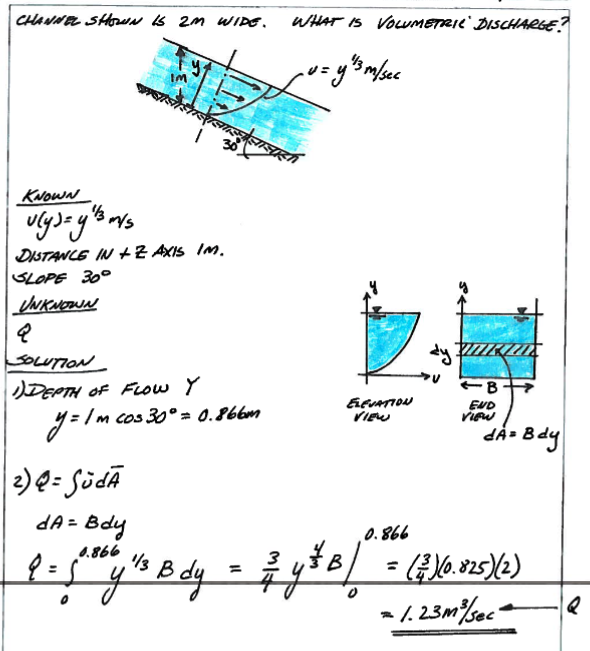 CHANNEL SHOWN IS 2M WIDE. WHAT IS VOLUMETRIC DISCHARGE?
1M
y
v = y^1/3 m/sec
30°
KNOWN
v(y) = y^1/3 m/s
DISTANCE IN + Z AXIS 1M.
SLOPE 30°
UNKNOWN
Q
SOLUTION
1) DEPTH OF FLOW Y
y = 1m cos 30° = 0.866m
y
v
ELEVATION
VIEW
y
dy
B
END
VIEW
dA = B dy
2) Q = ∫v̄ dĀ
dA = B dy
Q = ∫_0^0.866 y^1/3 B dy = 3/4 y^4/3 B |_0^0.866 = (3/4)(0.825)(2)
= 1.23 m³/sec Q